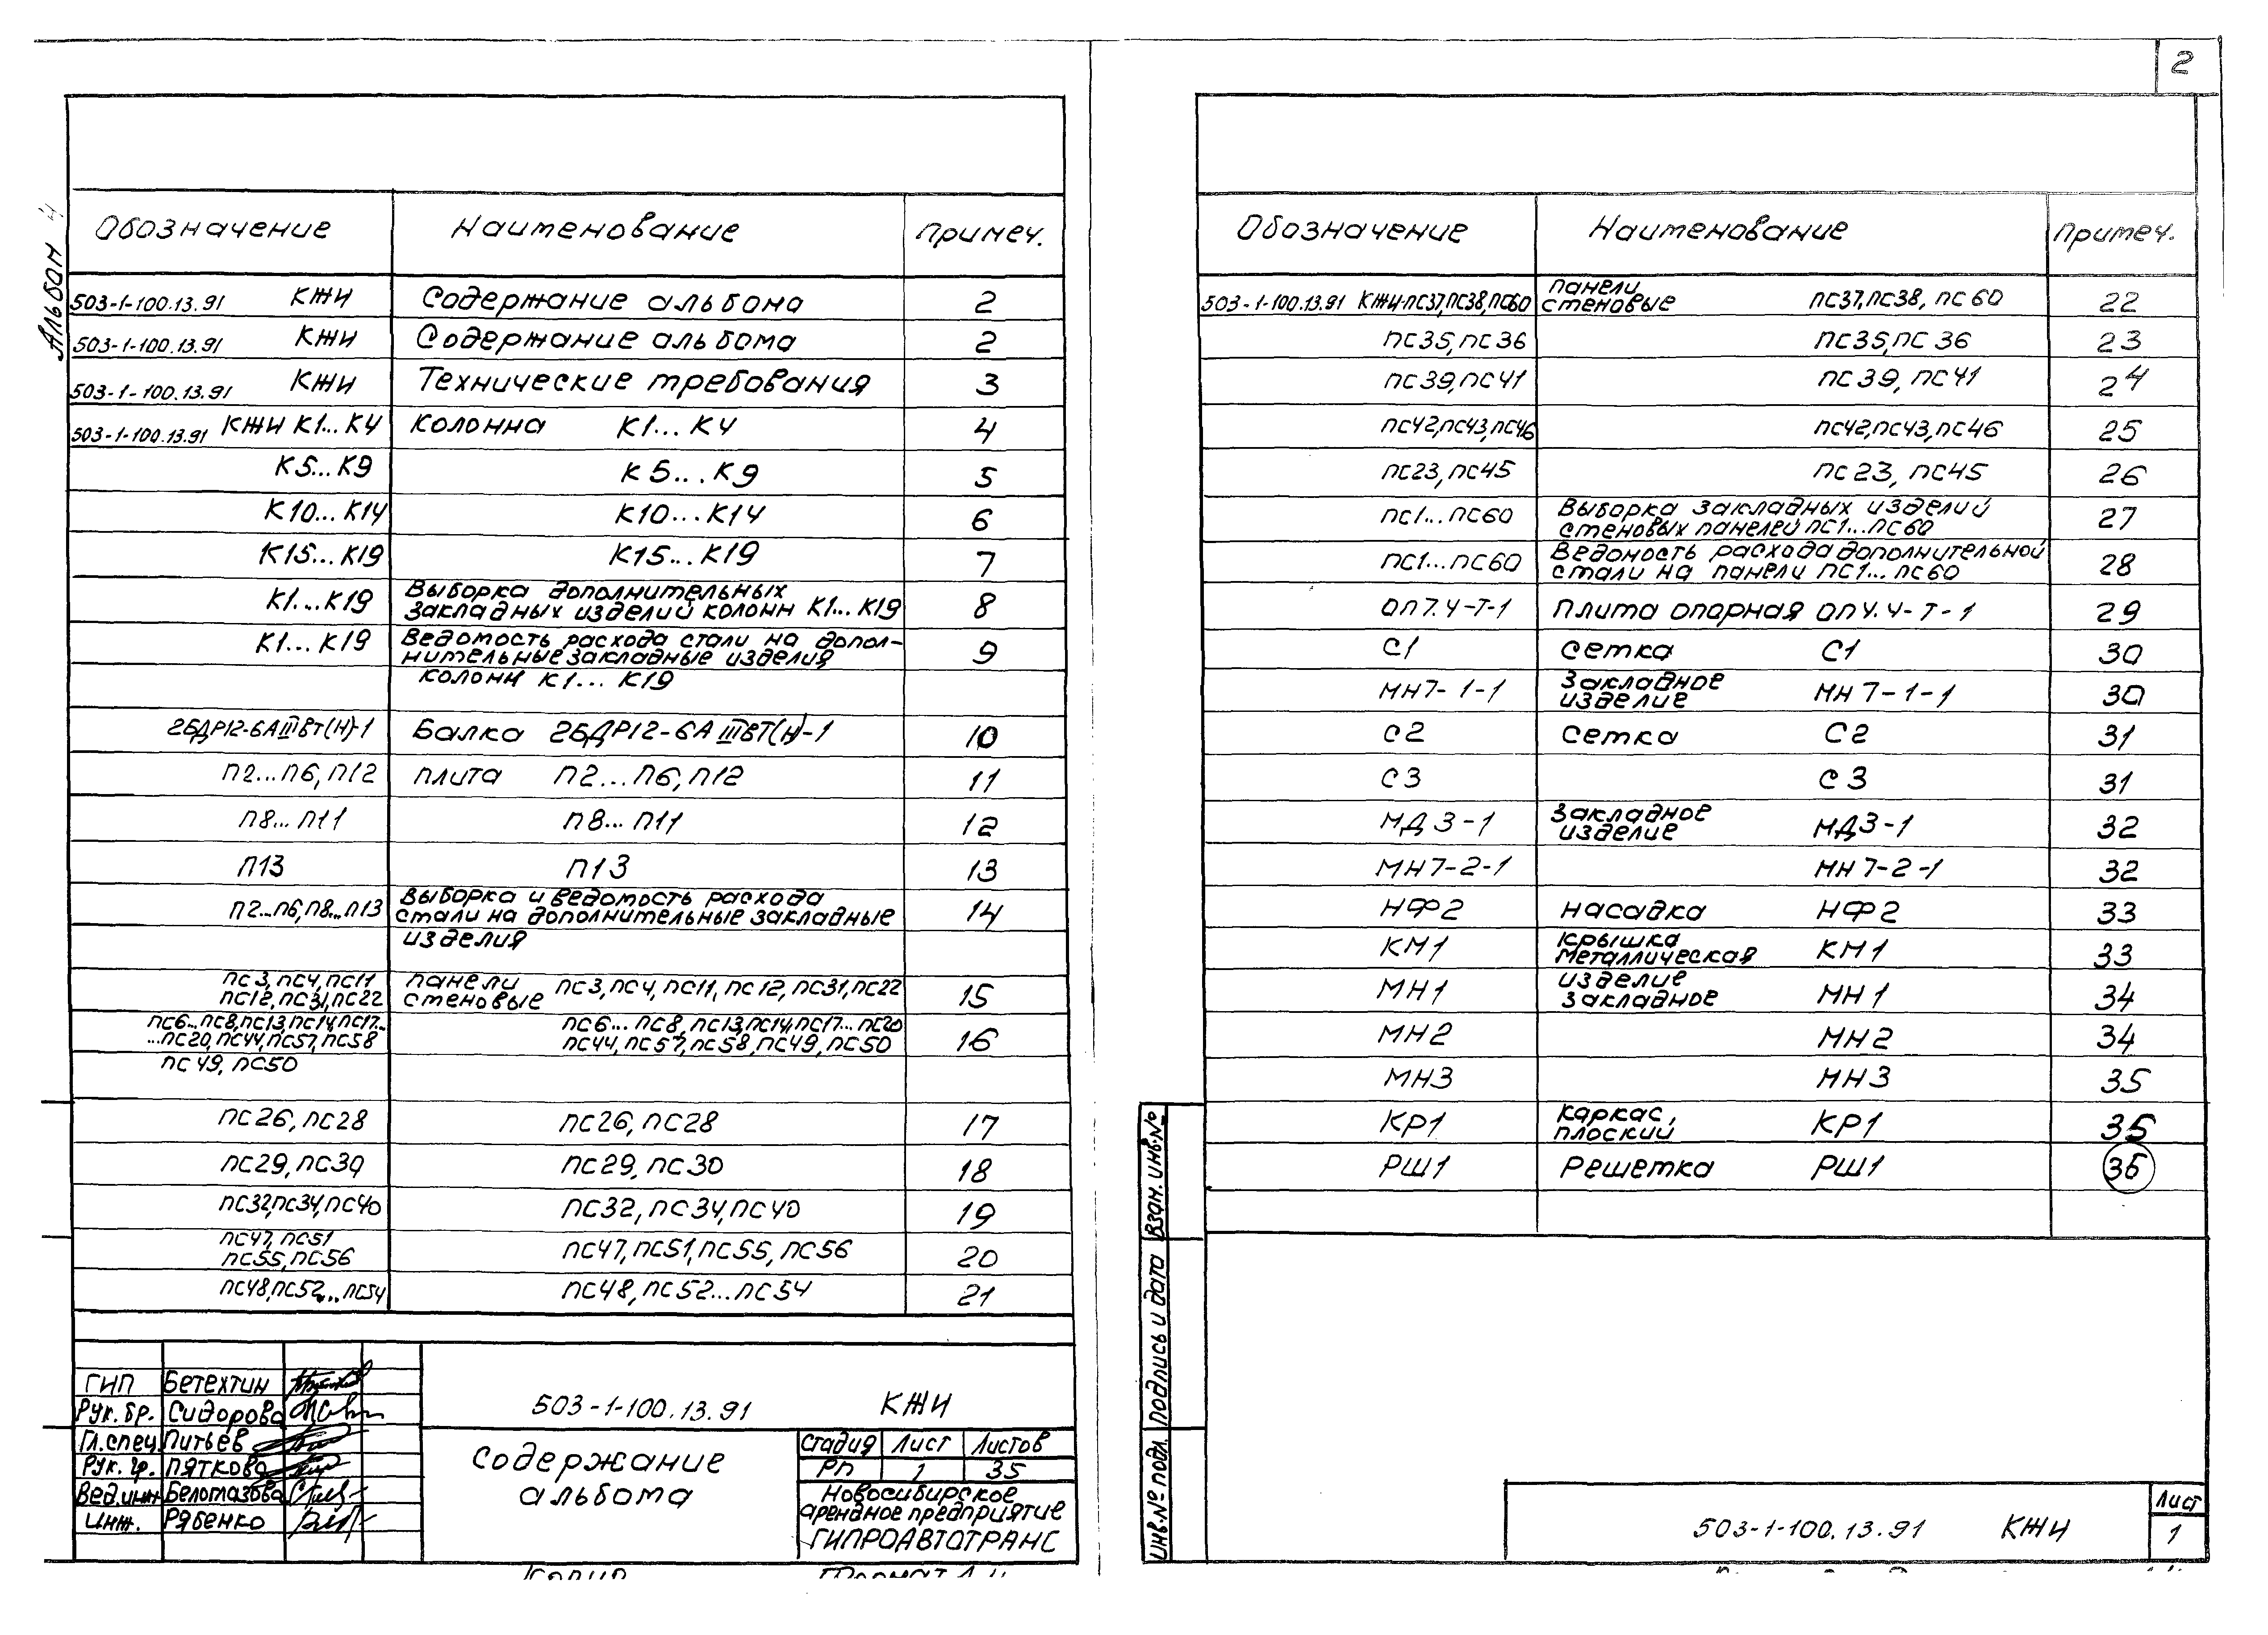 2
Альбом 4
Обозначение Наименование Примеч.
503-1-100.13.91 КЖИ Содержание альбома 2
503-1-100.13.91 КЖИ Содержание альбома 2
503-1-100.13.91 КЖИ Технические требования 3
503-1-100.13.91 КЖИ К1...К4 Колонна К1...К4 4
К5...К9 К5...К9 5
К10...К14 К10...К14 6
К15...К19 К15...К19 7
К1...К19 Выборка дополнительных
закладных изделий колонн К1...К19 8
К1...К19 Ведомость расхода стали на допол-
нительные закладные изделия 9
колонн К1...К19
2БДР12-6АIIIвт(н)-1 Балка 2БДР12-6АIIIвт(н)-1 10
П2...П6, П12 плита П2...П6, П12 11
П8...П11 П8...П11 12
П13 П13 13
П2...П6, П8...П13 Выборка и ведомость расхода
стали на дополнительные закладные 14
изделия
пс3, пс4, пс11 панели
пс12, пс31, пс22 стеновые пс3, пс4, пс11, пс12, пс31, пс22 15
пс6...пс8, пс13, пс14, пс17... пс6...пс8, пс13, пс14, пс17...пс20
...пс20, пс44, пс57, пс58 пс44, пс57, пс58, пс49, пс50 16
пс49, пс50
пс26, пс28 пс26, пс28 17
пс29, пс30 пс29, пс30 18
пс32, пс34, пс40 пс32, пс34, пс40 19
пс47, пс51
пс55, пс56 пс47, пс51, пс55, пс56 20
пс48, пс52...пс54 пс48, пс52...пс54 21
ГИП Бетехтин
Рук. бр. Сидорова
Гл. спец. Питьев
Рук. гр. Пяткова
Вед. инж. Беломазова
Инж. Рябенко
503-1-100.13.91 КЖИ
Содержание
альбома
Стадия Лист Листов
РП 1 35
Новосибирское
арендное предприятие
ГИПРОАВТОТРАНС
Копир Формат
Обозначение Наименование Примеч.
503-1-100.13.91 КЖИ-пс37, пс38, пс60 панели
стеновые пс37, пс38, пс60 22
пс35, пс36 пс35, пс36 23
пс39, пс41 пс39, пс41 24
пс42, пс43, пс46 пс42, пс43, пс46 25
пс23, пс45 пс23, пс45 26
пс1...пс60 Выборка закладных изделий
стеновых панелей пс1...пс60 27
пс1...пс60 Ведомость расхода дополнительной
стали на панели пс1...пс60 28
ОП7.4-Т-1 Плита опорная ОП4.4-Т-1 29
С1 Сетка С1 30
МН7-1-1 Закладное
изделие МН7-1-1 30
С2 Сетка С2 31
С3 С3 31
МД3-1 Закладное
изделие МД3-1 32
МН7-2-1 МН7-2-1 32
НФ2 Насадка НФ2 33
КМ1 Крышка
металлическая КМ1 33
МН1 изделие
закладное МН1 34
МН2 МН2 34
МН3 МН3 35
КР1 Каркас,
плоский КР1 35
РШ1 Решетка РШ1 36
Инв.№ подл. Подпись и дата Взам. инв.№
503-1-100.13.91 КЖИ
Лист
1